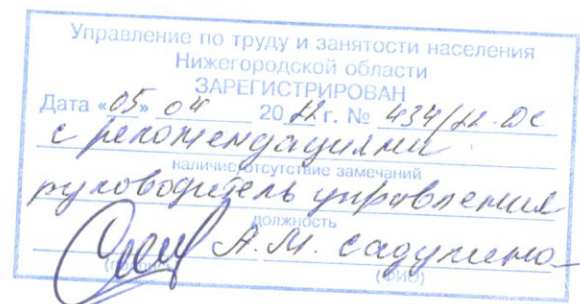 Управление по труду и занятости населения
Нижегородской области
ЗАРЕГИСТРИРОВАН
Дата «05» 04 2022 г. № 434/22-ДС
с рекомендациями
наличие/отсутствие замечаний
руководитель управления
должность
А.М. Садулина
(ФИО)